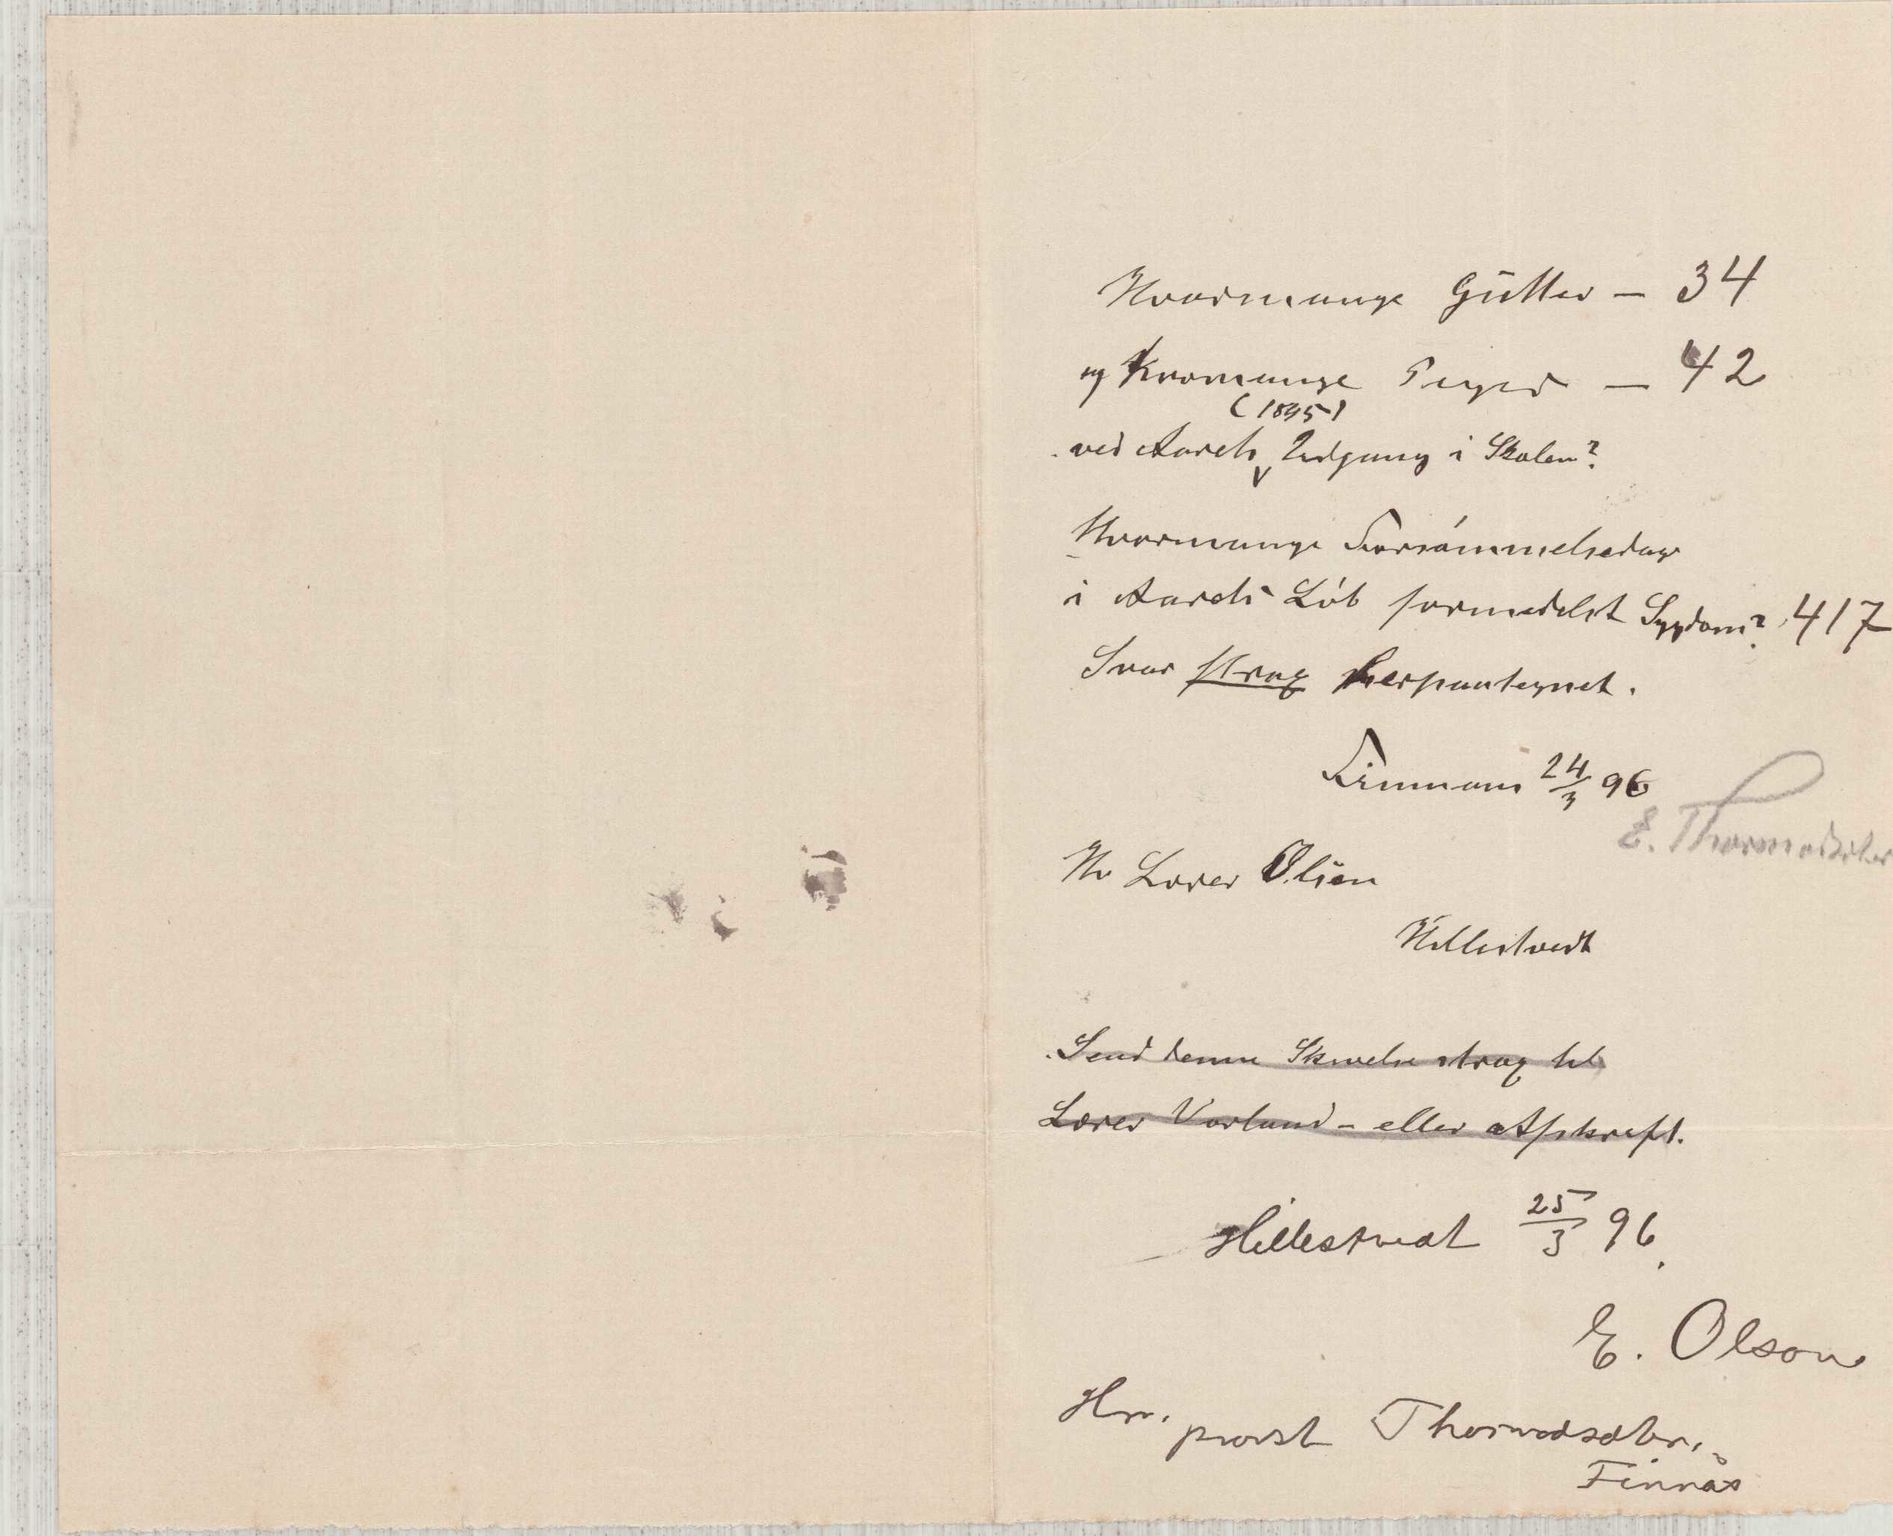 Hvormange Gutter — 34
og hvormange Piger — 42
(1895)
ved Aarets Udgang i Skolen?
Hvormange Forsømmelsedage
i Aarets Løb formedelst Sygdom? 417
Svar strax herpaategnet.
Finnaas 24/3 96
E. Thormodsæter
Hr Lærer Olsen
Hillestvedt
Send denne Skrivelse strax til
Lærer Vorland – eller Afskrift.
Hillestvedt 25/3 96.
E. Olson
Hrr. provst Thormodsæter,
Finnås